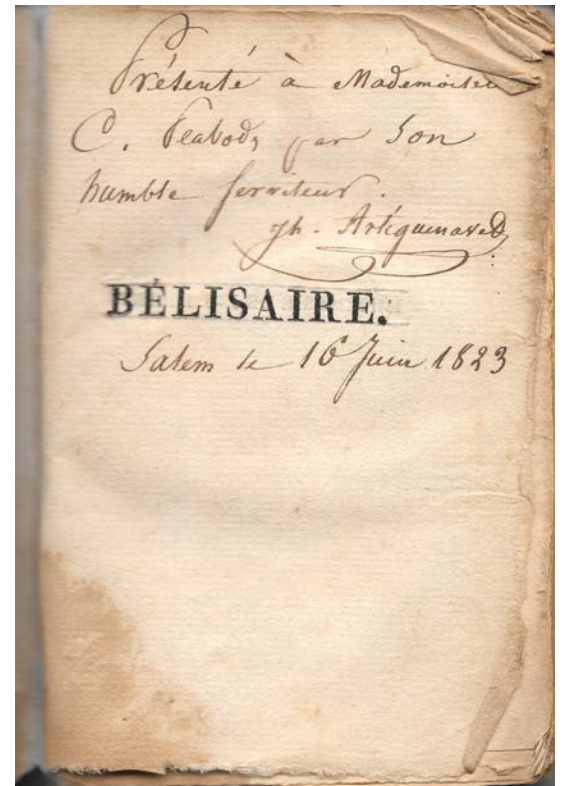 Présenté à Mademoisel
C. Peabody par son
humble serviteur.
Jh. Artiguenave
BÉLISAIRE.
Salem le 16 Juin 1823